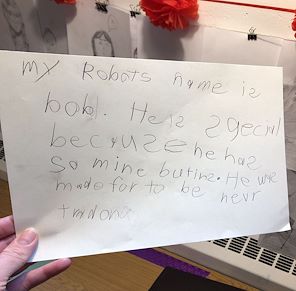 My Robots name is
bobl. He is speciul
becauze he haz
so mine butinz. He wuz
made for to be nevr